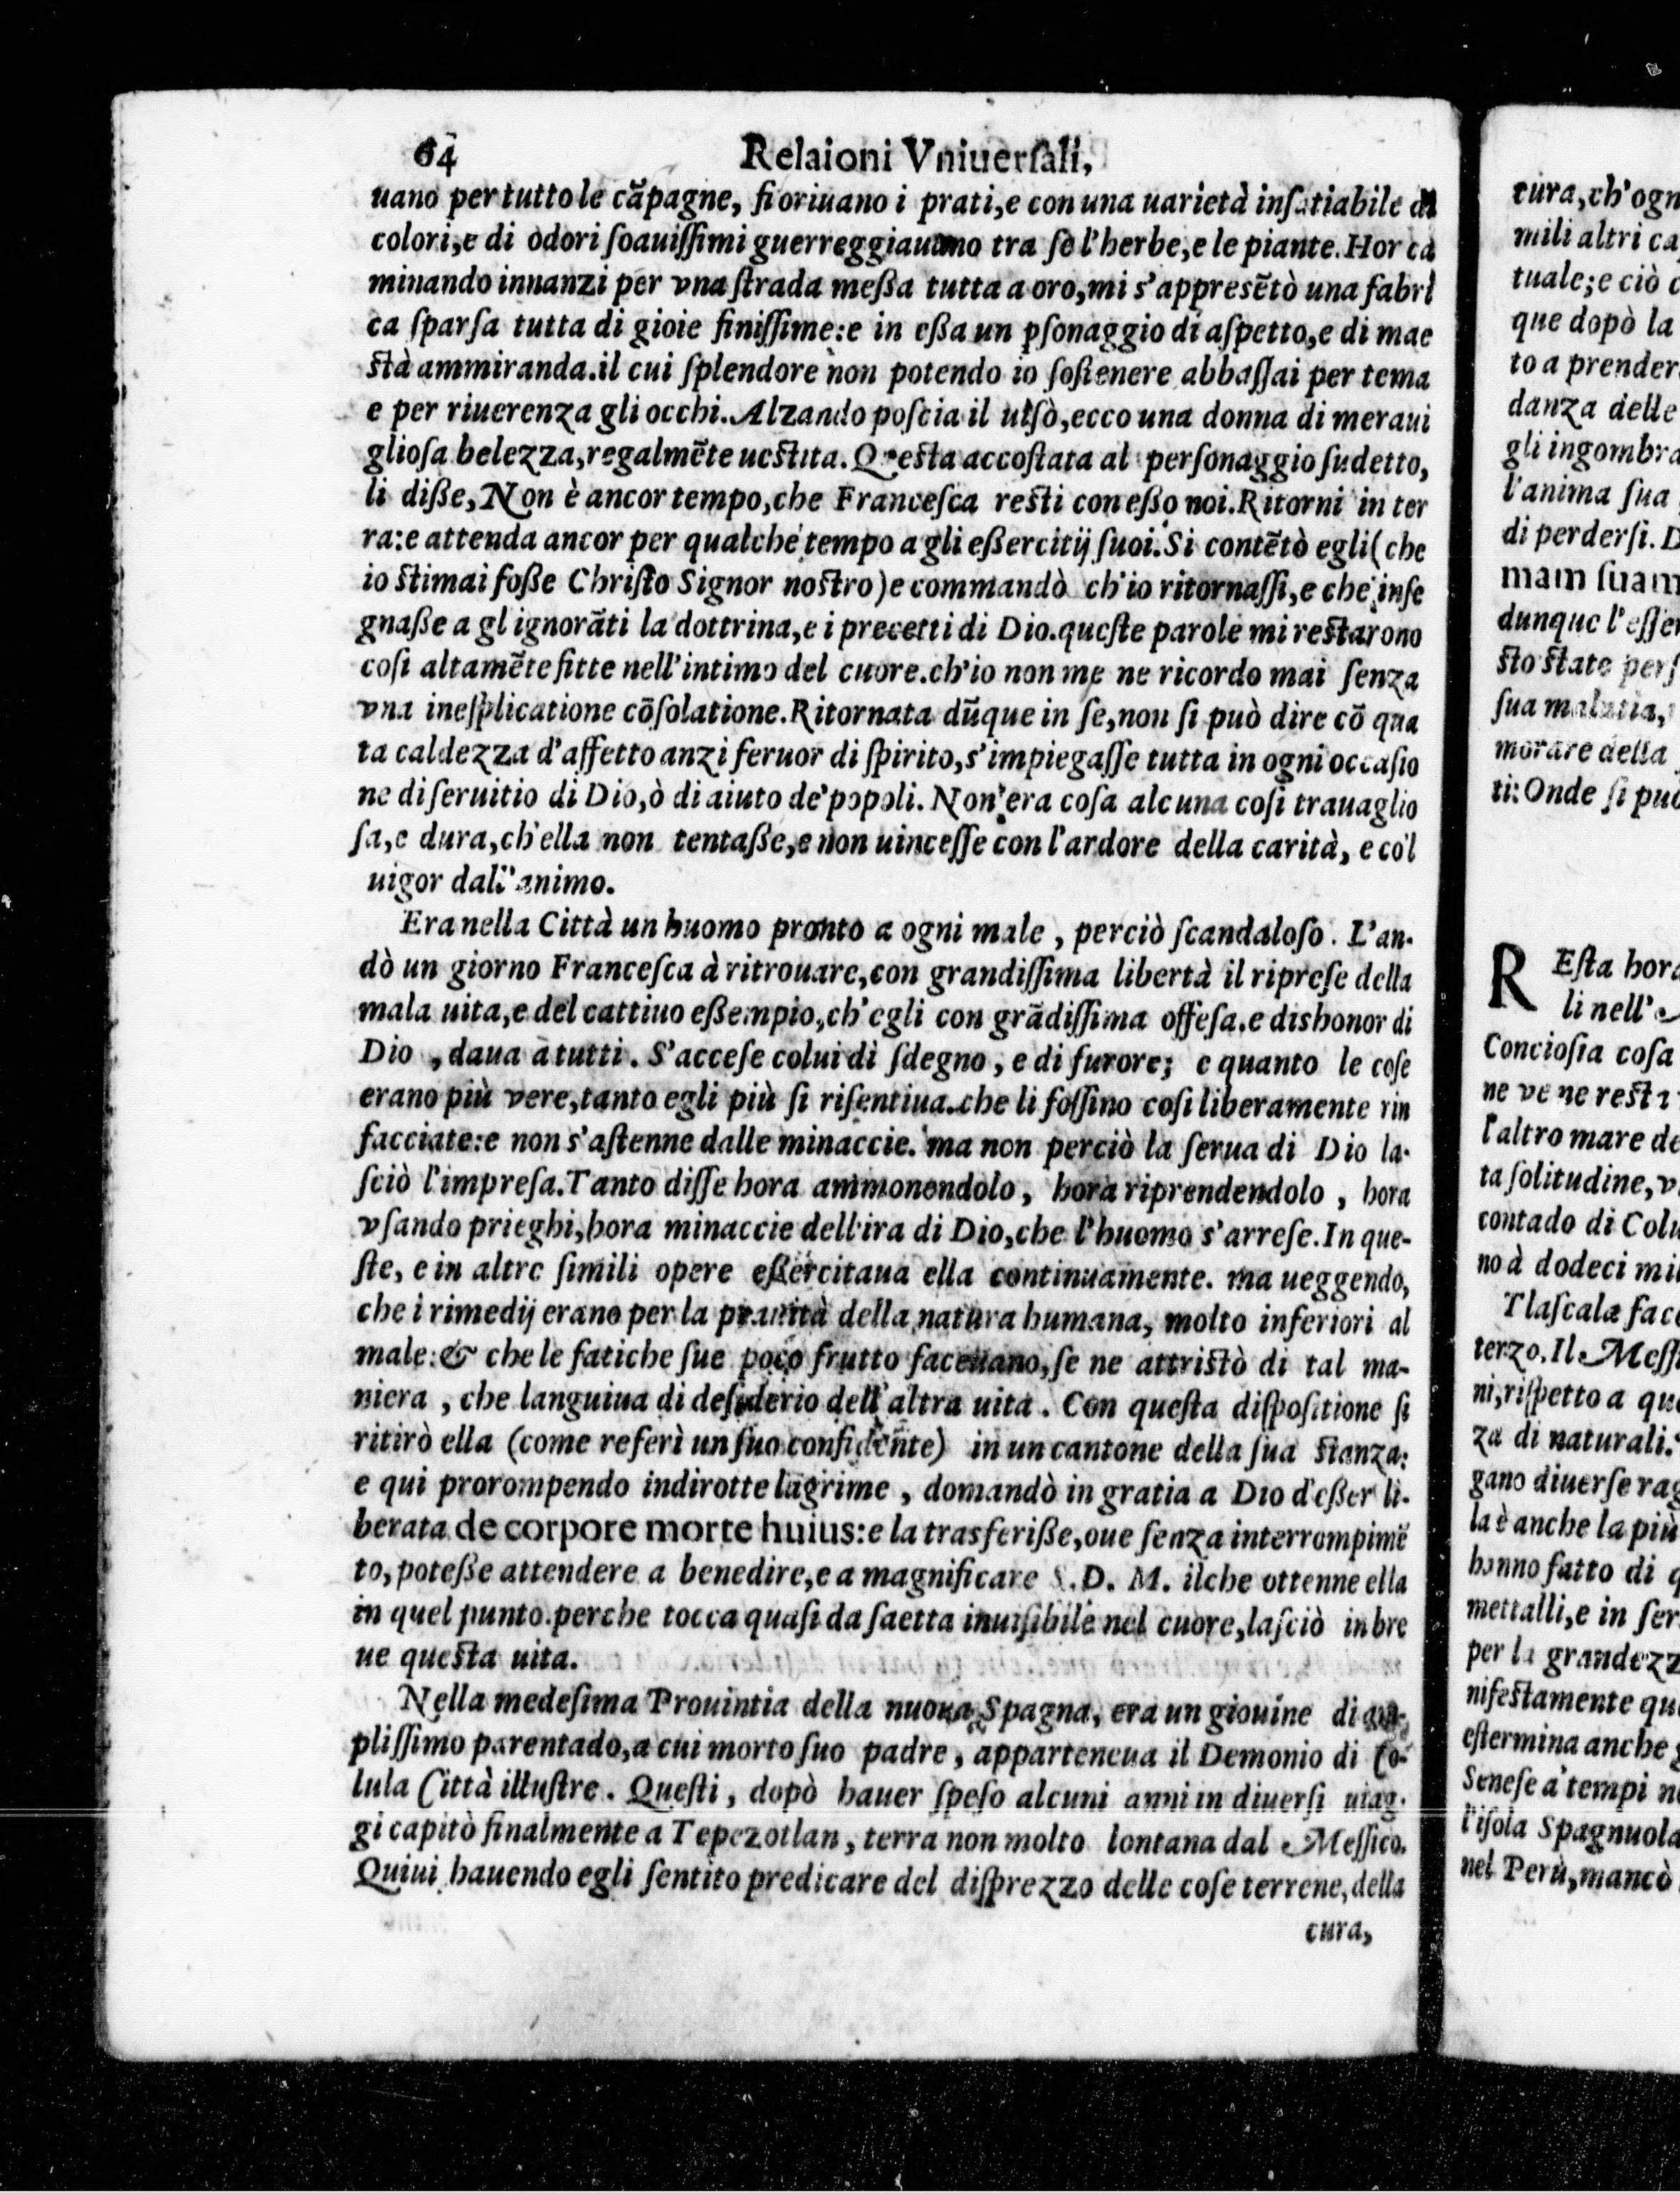 64 Relaioni Vniuerſali,
uano per tutto le cãpagne, fioriuano i prati,e con una uarietà inſatiabile di
colori,e di odori ſoauiſſimi guerreggiauano tra ſe l'herbe,e le piante.Hor ca
minando innanzi per vna ſtrada meſſa tutta a oro,mi s'appresẽtò una fabri
ca ſparſa tutta di gioie finiſſime:e in eſſa un pſonaggio di aſpetto,e di mae
ſtà ammiranda.il cui ſplendore non potendo io ſoſtenere abbaſſai per tema
e per riuerenza gli occhi.Alzando poſcia il uiſo,ecco una donna di meraui
glioſa belezza,regalmẽte ueſtita.Queſta accoſtata al perſonaggio ſudetto,
li diſſe,Non è ancor tempo,che Franceſca reſti con eſſo noi.Ritorni in ter
ra:e attenda ancor per qualche tempo a gli eſſercitij ſuoi.Si contẽtò egli(che
io ſtimai foſſe Chriſto Signor noſtro)e commandò ch'io ritornaſſi,e che inſe
gnaſſe a gl ignorãti la dottrina,e i precetti di Dio.queſte parole mi reſtarono
coſi altamẽte fitte nell'intimo del cuore.ch'io non me ne ricordo mai ſenza
vna ineſplicatione cõſolatione.Ritornata dũque in ſe,non ſi può dire cõ qua
ta caldezza d'affetto anzi feruor di ſpirito,s'impiegaſſe tutta in ogni occaſio
ne di ſeruitio di Dio,ò di aiuto de'popoli.Non era coſa alcuna coſi trauaglio
ſa,e dura,ch'ella non tentaſſe,e non uinceſſe con l'ardore della carità, e co'l
uigor dall'animo.
Era nella Città un huomo pronto a ogni male , perciò ſcandaloſo. L'an-
dò un giorno Franceſca à ritrouare,con grandiſſima libertà il ripreſe della
mala uita,e del cattiuo eſſempio,ch'egli con grãdiſſima offeſa,e dishonor di
Dio , daua a tutti. S'acceſe colui di ſdegno , e di furore; e quanto le coſe
erano più vere,tanto egli più ſi riſentiua.che li foſſino coſi liberamente rin
facciate:e non s'aſtenne dalle minaccie. ma non perciò la ſerua di Dio la-
ſciò l'impreſa.Tanto diſſe hora ammonendolo , hora riprendendolo , hora
vſando prieghi,hora minaccie dell'ira di Dio,che l'huomo s'arreſe.In que-
ſte, e in altre ſimili opere eſſercitaua ella continuamente. ma ueggendo,
che i rimedij erano per la prauità della natura humana, molto inferiori al
male:& che le fatiche ſue poco frutto faceuano,ſe ne attriſtò di tal ma-
niera , che languiua di deſiderio dell'altra uita . Con queſta diſpoſitione ſi
ritirò ella (come referì un ſuo confidente) in un cantone della ſua ſtanza:
e qui prorompendo indirotte lagrime , domandò in gratia a Dio d'eſſer li-
berata de corpore morte huius:e la trasferiſſe,oue ſenza interrompimẽ
to,poteſſe attendere a benedire,e a magnificare S.D. M. ilche ottenne ella
in quel punto.perche tocca quaſi da ſaetta inuiſibile nel cuore,laſciò in bre
ue queſta uita.
Nella medeſima Prouintia della nuoua Spagna, era un giouine di am-
pliſſimo parentado,a cui morto ſuo padre , apparteneua il Demonio di Co-
lula Città illuſtre . Queſti , dopò hauer ſpeſo alcuni anni in diuerſi uiag-
gi capitò finalmente a Tepezotlan , terra non molto lontana dal Meſſico.
Quiui hauendo egli ſentito predicare del diſprezzo delle coſe terrene, della
cura,
cura,ch'ogn
mili altri ca
tuale;e ciò c
que dopò la
to a prender
danza delle
gli ingombra
l'anima ſua
di perderſi. D
mam ſuam
dunque l'eſſe
ſto ſtato perſ
ſua malatia,
morare della
ti:Onde ſi può
REſta hora
li nell'
Concioſia coſa
ne ve ne reſti
l'altro mare de
ta ſolitudine,v
contado di Colu
no à dodeci mi
Tlaſcala face
terzo.Il Meſſi
ni,riſpetto a qu
za di naturali.
gano diuerſe rag
la è anche la più
hanno fatto di q
mettalli,e in ſer
per la grandezz
nifeſtamente qu
eſtermina anche
Seneſe a'tempi n
l'iſola Spagnuola
nel Perù,mancò